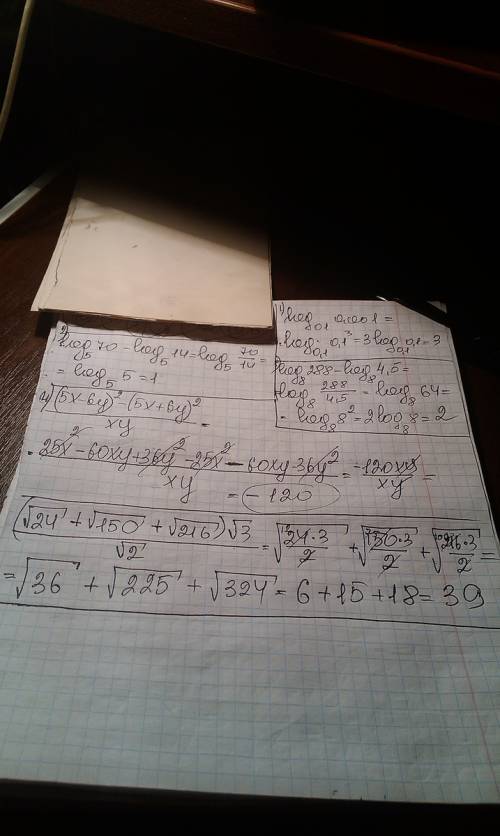 1) log₀,₁ 0,001 =
= log₀,₁ 0,1³ = 3 log₀,₁ 0,1 = 3
2) log₅ 70 - log₅ 14 = log₅ 70/14 =
= log₅ 5 = 1
log₈ 288 - log₈ 4,5 =
log₈ 288/4,5 = log₈ 64 =
= log₈ 8² = 2 log₈ 8 = 2
4) ((5x-6y)² - (5x+6y)²)/xy =
= (25x² - 60xy + 36y² - 25x² - 60xy - 36y²)/xy = -120xy/xy =
= -120
((√24 + √150 + √216)√3)/√2 = √(24·3/2) + √(150·3/2) + √(216·3/2) =
= √36 + √225 + √324 = 6 + 15 + 18 = 39